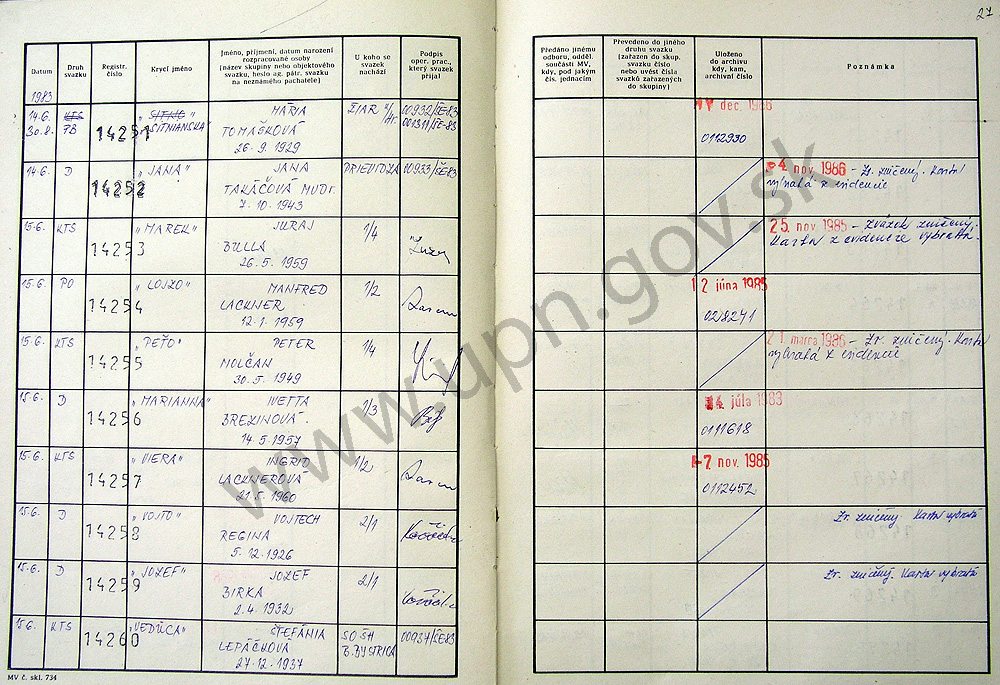 27
Datum
Druh svazku
Registr. číslo
Krycí jméno
Jméno, příjmení, datum narození rozpracované osoby (název skupiny nebo objektového svazku, heslo ag. pátr. svazku na neznámého pachatele)
U koho se svazek nachází
Podpis oper. prac., který svazek přijal
Předáno jinému odboru, odděl. součásti MV, kdy, pod jakým čís. jednacím
Převedeno do jiného druhu svazku (zařazen do skup. svazku číslo nebo uvést čísla svazků zařazených do skupiny)
Uloženo do archivu kdy, kam, archivní číslo
Poznámka
1983
14.6. KTS 14251 „SITNO" MÁRIA ŽIAR n/Hr. 00932/ŠE-83 dec. 1986
30.8. PB „SITNIANSKA" TOMÁŠKOVÁ 001311/ŠE-83 0112930
26.9.1929
14.6. D 14252 „JANA" JANA PRIEVIDZA 00933/ŠE83 4. nov. 1986 - Zv. zničený. Karta
TAKÁČOVÁ MUDr. vybratá z evidencie
7.10.1943
15.6. KTS 14253 „MAREK" JURAJ 1/4 25. nov. 1985 - zväzok zničený,
BULLA Karta z evidencie vybratá.
26.5.1959
15.6. PO 14254 „LOJZO" MANFRED 1/2 2. júna 1985
LACKNER 028241
12.1.1959
15.6. KTS 14255 „PEŤO" PETER 1/4 21. marca 1986 - Zv. zničený. Karta
MOLČAN vybratá z evidencie
30.5.1949
15.6. D 14256 „MARIANNA" IVETTA 1/3 14. júla 1983
BREZINOVÁ 0111618
14.5.1957
15.6. KTS 14257 „VIERA" INGRID 1/2 7. nov. 1985
LACKNEROVÁ 0112452
21.5.1960
15.6. D 14258 „VOJTO" VOJTECH 2/1 Zv. zničený. Karta vybratá
REGINA
5.12.1926
15.6. D 14259 „JOZEF" JOZEF 2/1 Zv. zničený. Karta vybratá
BIRKA
2.4.1932
15.6. KTS 14260 „VEDÚCA" ŠTEFÁNIA SO ŠH 00937/ŠE83
LEPÁČKOVÁ B.BYSTRICA
27.12.1937
MV č. skl. 734
www.upn.gov.sk